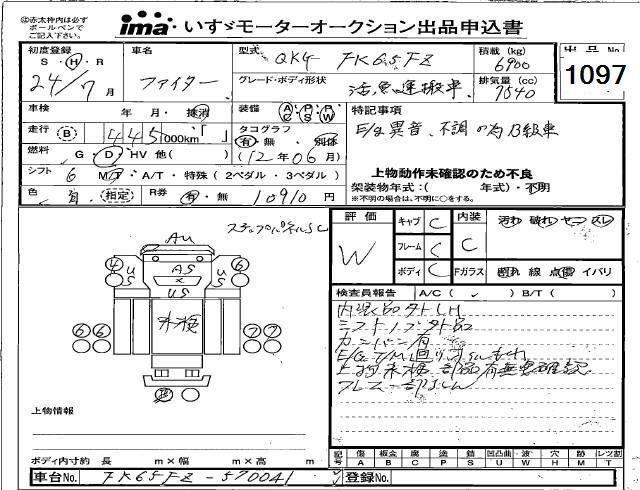 ㊟赤太枠内は必ず
ボールペンで
ご記入下さい。
ima いすゞモーターオークション出品申込書
初度登録
S・H・R
24/7月
車名
ファイター
型式
QKG- FK65FZ
積載 (kg)
6900
出品No
1097
グレード・ボディ形状
活魚運搬車
排気量 (cc)
7540
車検 年 月・抹消
装備 A/C P/S P/W
特記事項
E/g異音、不調の為B級車
走行 B 445,000km
タコグラフ
有・無 別体
燃料 G・D・HV 他( )
(12年06月)
シフト 6 MT・A/T・特殊(2ペダル・3ペダル)
上物動作未確認のため不良
架装物年式:( 年式)・不明
※不明の場合は、不明に〇をする。
色 (指定)
R券 有・無 10910円
ステップパネルSC
評価
W
キャブ C
フレーム C
ボディ C
内装
C
Fガラス
汚れ 破れ ヤニ スレ
線 点傷 イバリ
検査員報告 A/C( ) B/T( )
内張品外LH
シフトノブ外品
カンバン有
E/G T/M回りオイルもれ
上物未検 部品有無未確認
AU
4
6
US
AS
US
US
未検
6 6
7 7
上物情報
ボディ内寸約 長 m×幅 m×高 m
記号
傷 A
板金 B
腐 C
塗 P
錆 S
凹凸曲 U
波 W
穴 H
跡 M
レツ割 T S
車台No FK65FZ-570041
登録No